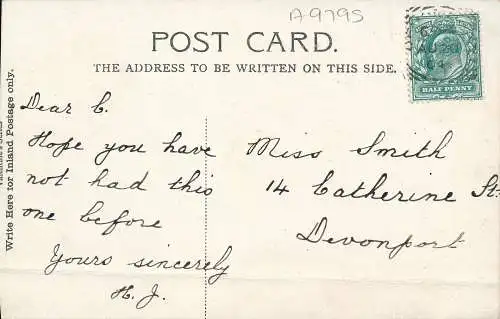 A9795
POST CARD.
THE ADDRESS TO BE WRITTEN ON THIS SIDE.
HALF PENNY
Write Here for Inland Postage only.
Dear C.
Hope you have
not had this
one before
Yours sincerely
H. J.
Miss Smith
14 Catherine St.
Devonport